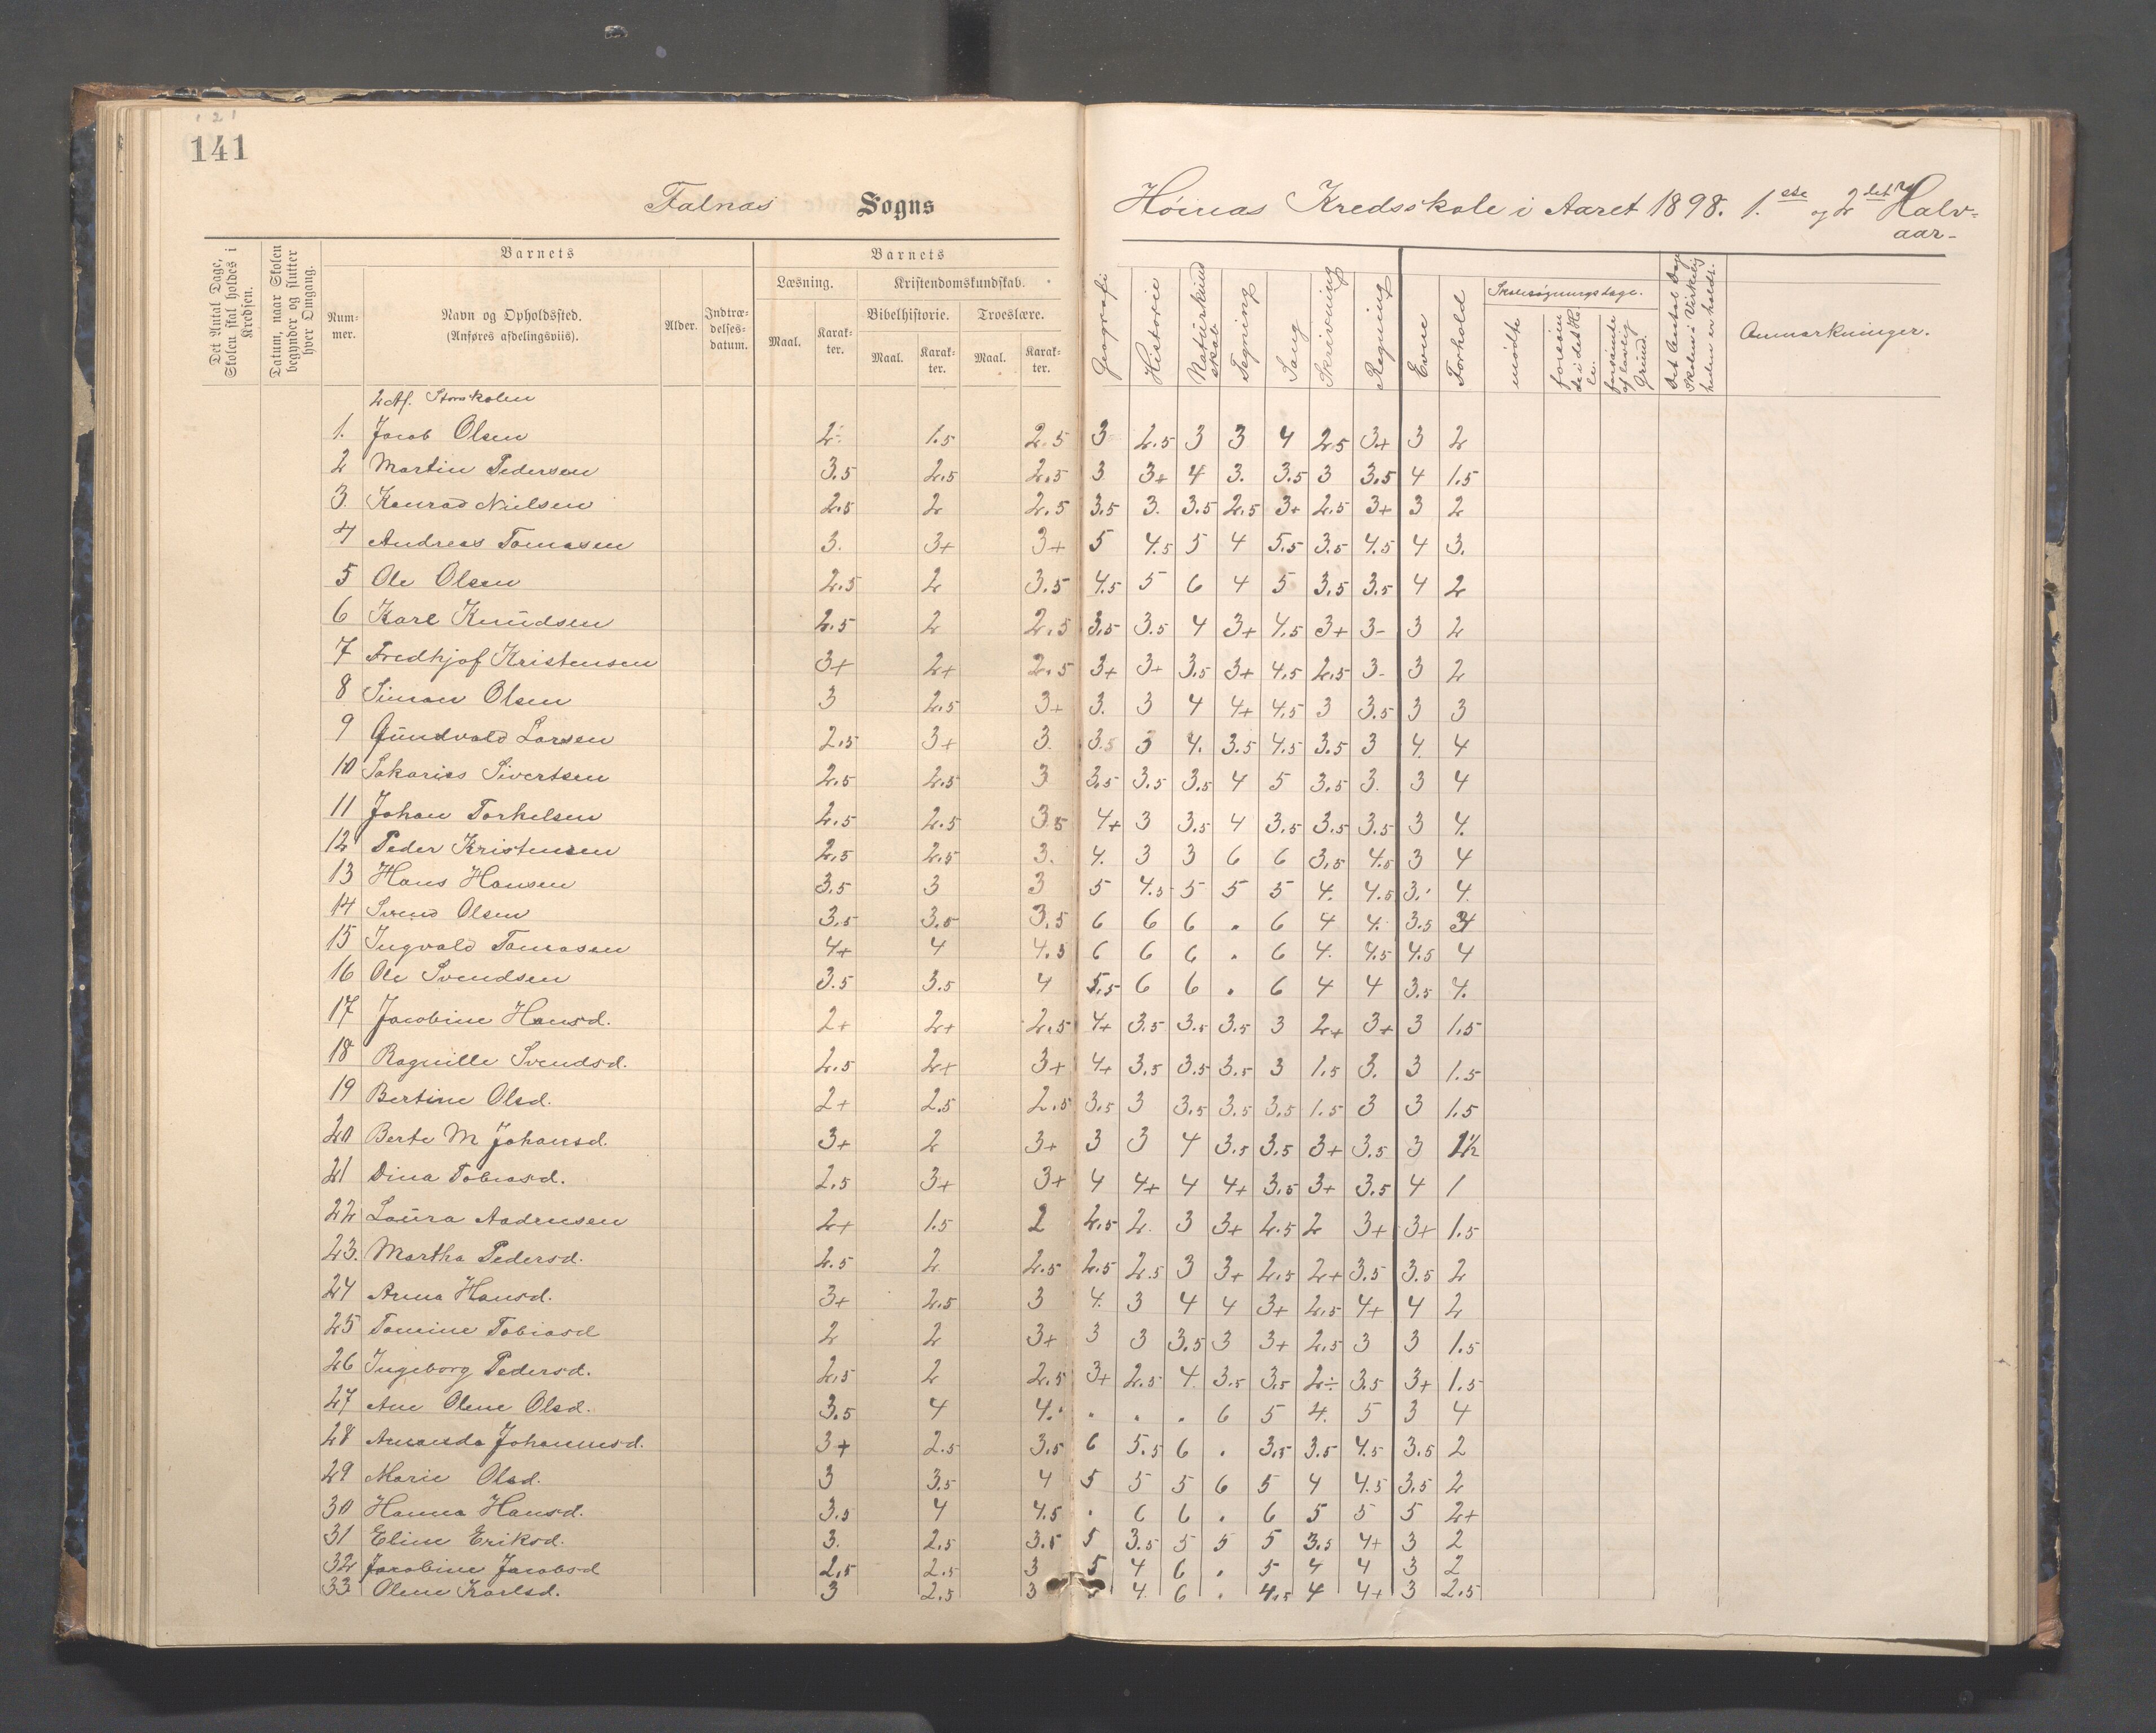 1 2 1
141
Falnæs Sogns
Høinæs Kredsskole i Aaret 1898. 1.ste og 2det Halv=
aar-
Det Antal Dage, Skolen skal holdes i Kredsen.
Datum, naar Skolen begynder og slutter hver Omgang.
Barnets
Barnets
Num-mer.
Navn og Opholdssted.
(Anføres afdelingsviis).
Alder.
Indtræ-delses-datum.
Læsning.
Kristendomskundskab.
Bibelhistorie.
Troeslære.
Maal. Karak-ter. Maal. Karak-ter. Maal. Karak-ter.
Geografi Historie Naturkundskab Tegning Sang Skrivning Regning Evne Forhold
Skolesøgningsdage.
mødte
forsømte i det Hele.
forsømte af lovlig Grund.
Det Antal Dage Skolen i Virkeligheden er holdt.
Anmærkninger.
2 Af. Storskolen
1. Jacob Olsen 2 1.5 2.5 3 2.5 3 3 4 2.5 3+ 3 2
2 Martin Pedersen 3.5 2.5 2.5 3 3+ 4 3. 3.5 3 3.5 4 1.5
3. Konrad Nielsen 2.5 2 2.5 3.5 3. 3.5 2.5 3+ 2.5 3+ 3 2
4 Andreas Tomasen 3. 3+ 3+ 5 4.5 5 4 5.5 3.5 4.5 4 3.
5 Ole Olsen 2.5 2 3.5 4.5 5 6 4 5 3.5 3.5 4 2
6 Karl Knudsen 2.5 2 2.5 3.5 3.5 4 3+ 4.5 3+ 3- 3 2
7 Fredhjof Kristensen 3+ 2+ 2.5 3+ 3+ 3.5 3+ 4.5 2.5 3- 3 2
8 Simon Olsen 3 2.5 3+ 3. 3 4 4+ 4.5 3 3.5 3 3
9 Gundvald Larsen 2.5 3+ 3. 3.5 3 4. 3.5 4.5 3.5 3 4. 4
10 Sakarias Sivertsen 2.5 2.5 3 3.5 3.5 3.5 4 5 3.5 3. 3 4
11 Johan Torkelsen 2.5 2.5 3.5 4+ 3 3.5 4 3.5 3.5 3.5 3 4.
12 Peder Kristensen 2.5 2.5 3. 4. 3 3 6 6 3.5 4.5 3 4
13 Hans Hansen 3.5 3 3 5 4.5 5 5 5 4. 4.5 3. 4.
14 Svend Olsen 3.5 3.5 3.5 6 6 6 . 6 4 4. 3.5 4
15 Ingvald Tomasen 4+ 4 4.5 6 6 6 . 6 4. 4.5 4.5 4
16 Ole Svendsen 3.5 3.5 4 5.5 6 6 . 6 4 4 3.5 4.
17 Jacobine Hansd. 2+ 2+ 2.5 4+ 3.5 3.5 3.5 3 2+ 3+ 3 1.5
18 Ragnille Svendsd. 2.5 2+ 3+ 4+ 3.5 3.5 3.5 3 1.5 3. 3 1.5
19 Bertine Olsd. 2+ 2.5 2.5 3.5 3 3.5 3.5 3.5 1.5 3 3 1.5
20 Berte M Johansd. 3+ 2 3+ 3 3 4 3.5 3.5 3+ 3.5 3 1½
21 Dina Tobiasd. 2.5 3+ 3+ 4 4+ 4 4+ 3.5 3+ 3.5 4 1
22 Laura Aadnesen 2+ 1.5 2 2.5 2. 3 3+ 2.5 2 3+ 3+ 1.5
23. Martha Pedersd. 2.5 2 2.5 2.5 2.5 3 3+ 2.5 2+ 3.5 3.5 2
24 Anna Hansd. 3+ 2.5 3 4. 3 4 4 3+ 2.5 4+ 4 2
25 Tomine Tobiasd 2 2 3+ 3 3 3.5 3 3+ 2.5 3 3 1.5
26 Ingeborg Pedersd. 2.5 2 2.5 3+ 2.5 4. 3.5 3.5 2÷ 3.5 3+ 1.5
27 Ane Olene Olsd. 3.5 4 4. . . . 6 5 4. 5 3 4
28 Amanda Johannesd. 3+ 2.5 3.5 6 5.5 6 . 3.5 3.5 4.5 3.5 2
29 Marie Olsd. 3 3.5 4 5 5 5 6 5 4 4.5 3.5 2
30 Hanna Hansd. 3.5 4 4.5 . 6 6 . 6 5 5 5 2+
31 Eline Eriksd. 3. 2.5 3.5 5 3.5 5 5 5 3.5 4+ 3 2
32 Jacobine Jacobsd 2.5 2.5 3 5 4 6 . 5 4 4 3 2
33 Olene Karlsd. 3 2.5 3 4. 6 . 4.5 4 4+ 3 2.5